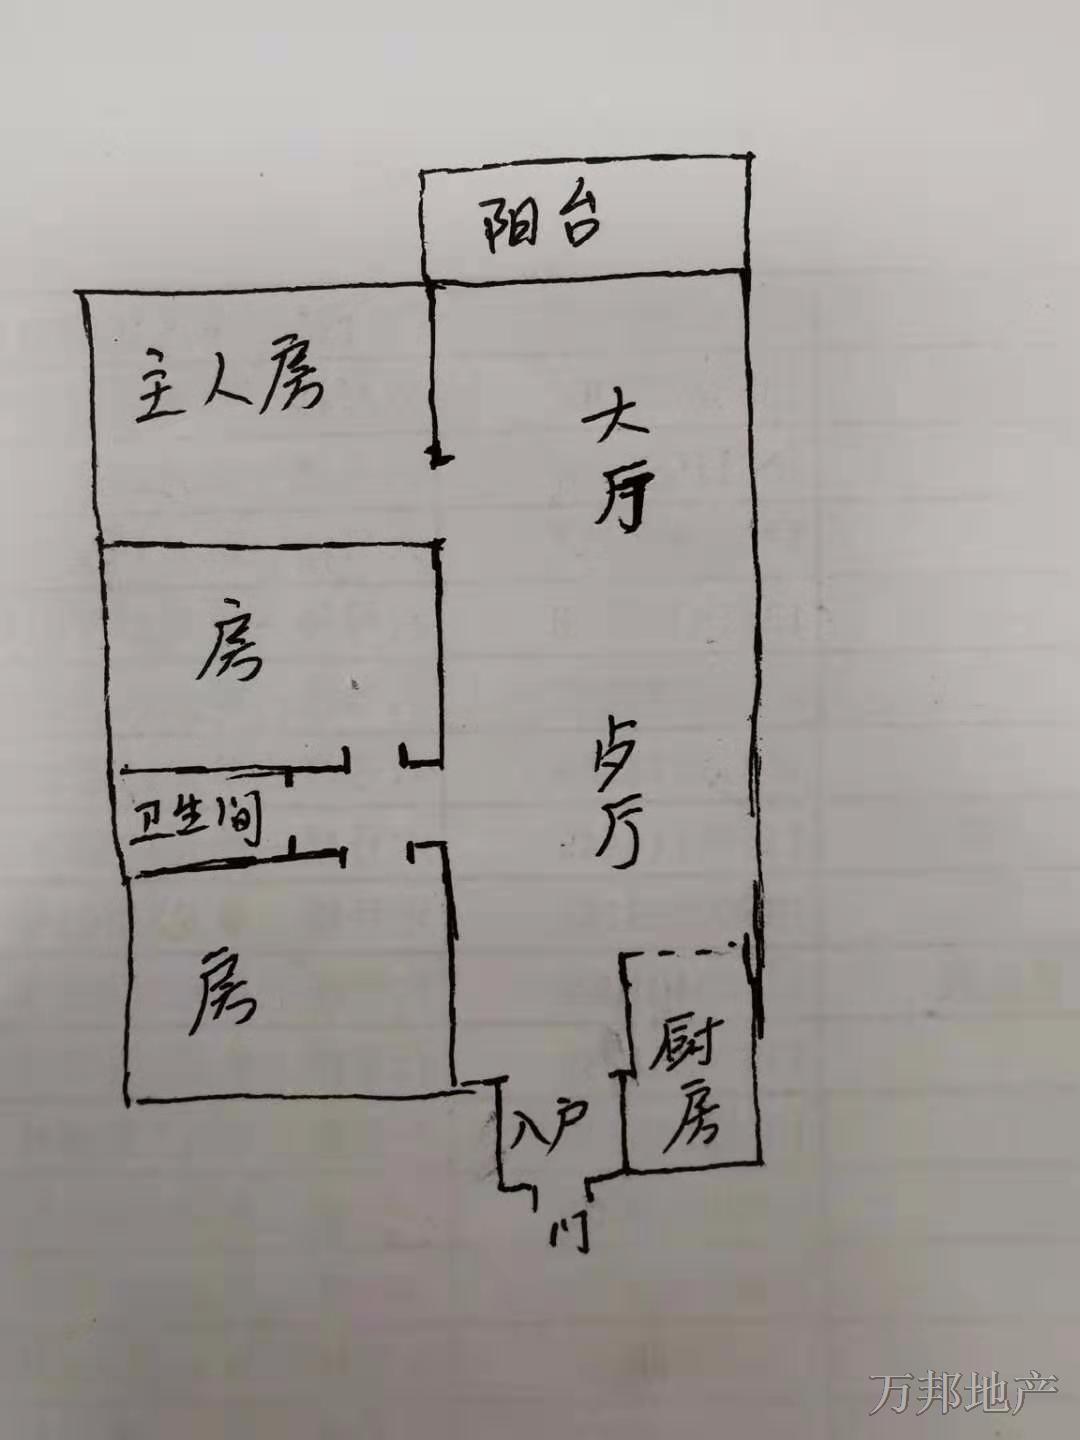 阳台
主人房
大厅
房
歺厅
卫生间
房
厨房
入户
门
万邦地产